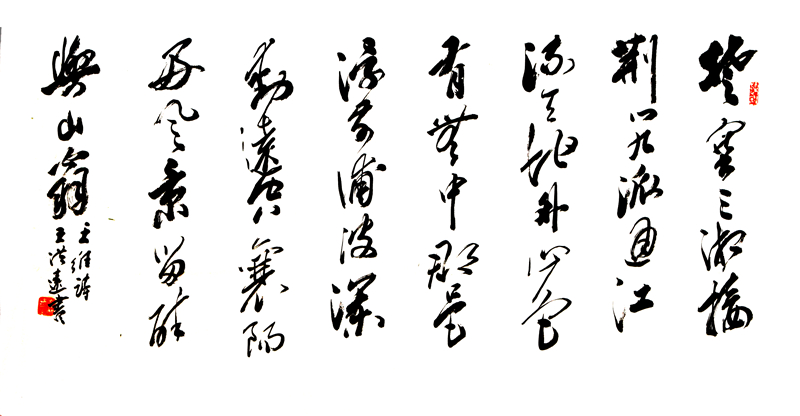 楚塞三湘接
荆门九派通江
流天地外山色
有無中郡邑
浮前浦波澜
動遠空襄陽
好风景留醉
與山翁
王维诗
王洪远書